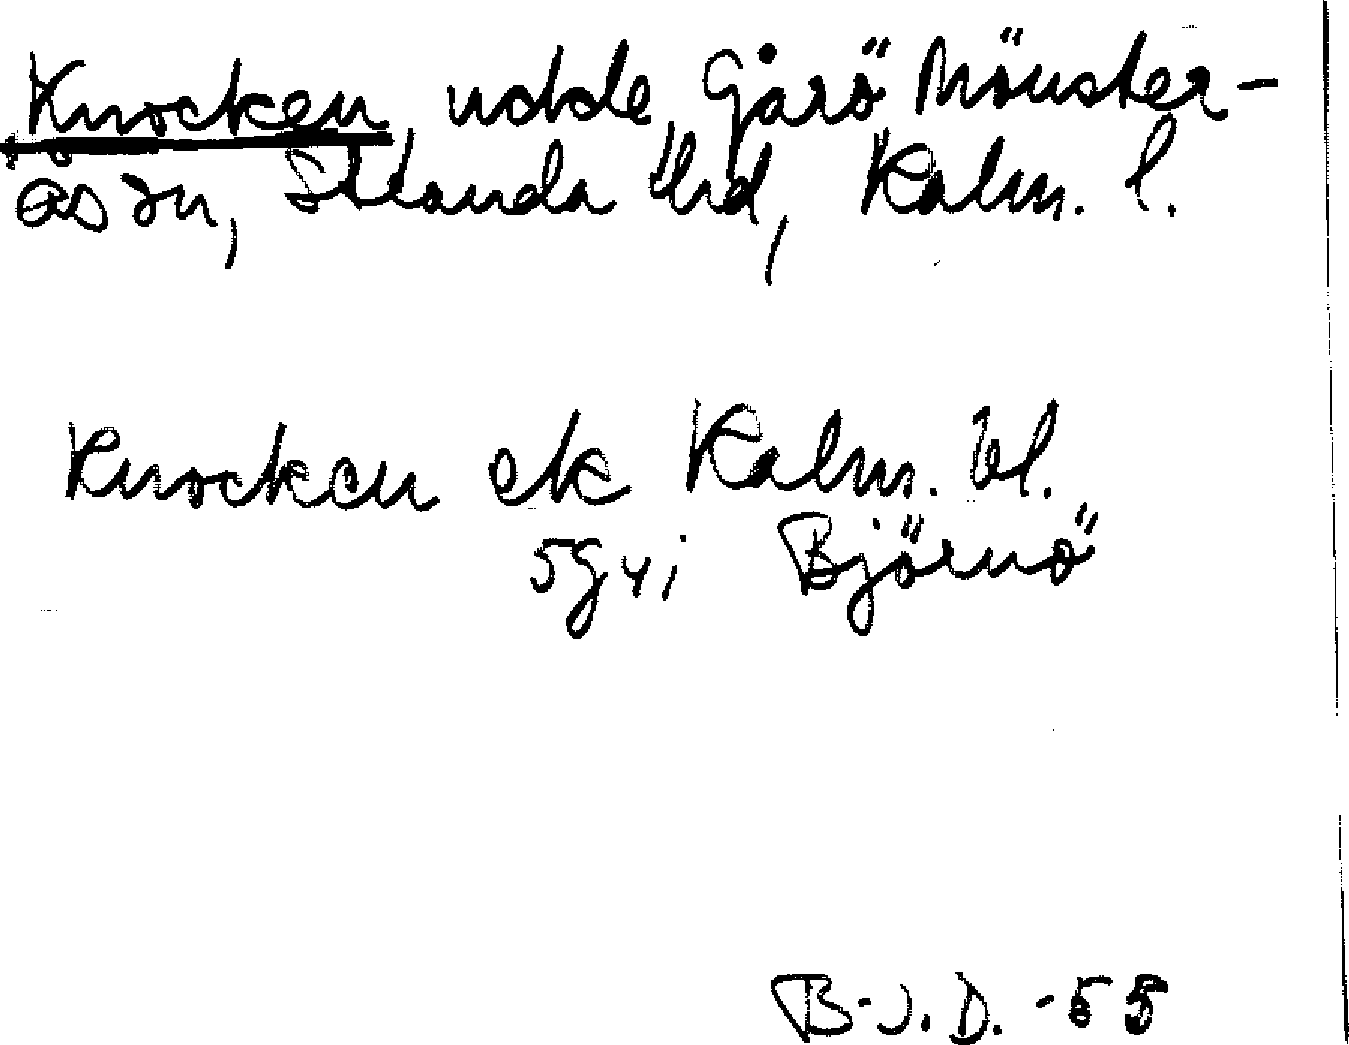 Knocken, udde, Gåsö Mönster-
ås sn, Stranda hd, Kalm. l.
Knocken ek Kalm. bl.
5g vi Björnö
B-J.D. -55